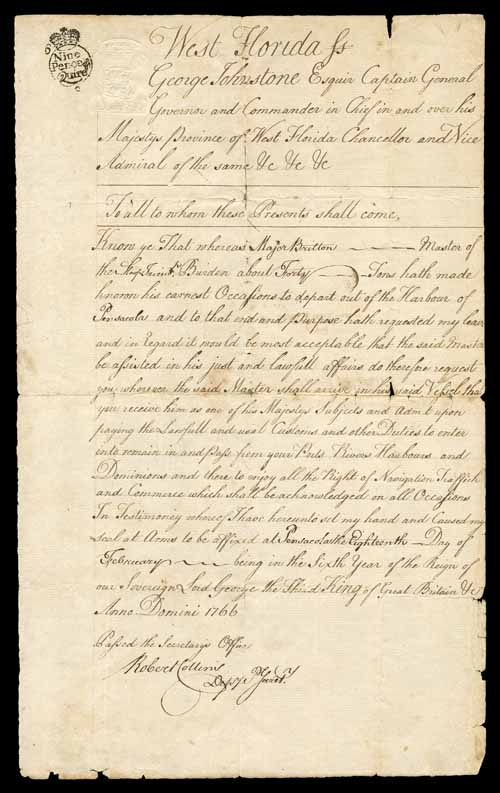 Nine
Pence
West Florida ss
George Johnstone Esquir Captain General
Governor and Commander in Chief in and over his
Majestys Province of West Florida Chancellor and Vice
Admiral of the same &c &c &c
To all to whom these Presents shall come,
Know ye That whereas Major Britton Master of
the Burden about Forty Tons hath made
known his earnest Occasions to depart out of the Harbour of
Pensacola and to that end and Purpose hath requested my leave
and in regard it would be most acceptable that the said Master
be assisted in his just and lawfull affairs do therefore request
you wherever the said Master shall arrive in his said Vessel that
you receive him as one of his Majestys Subjects and Admit upon
paying the Lawfull and usual Customs and other Duties to enter
into remain in and Pass from your Ports Rivers Harbours and
Dominions and there to enjoy all the Right of Navigation Traffick
and Commerce which shall be acknowledged on all Occasions
In Testimony whereof I have hereunto set my hand and Caused my
Seal at Arms to be affixed at Pensacola the Eighteenth Day of
February being in the Sixth Year of the Reign of
our Sovereign Lord George the Third King of Great Britain &c
Anno Domini 1766
Passed the Secretarys Office
Robert Collins